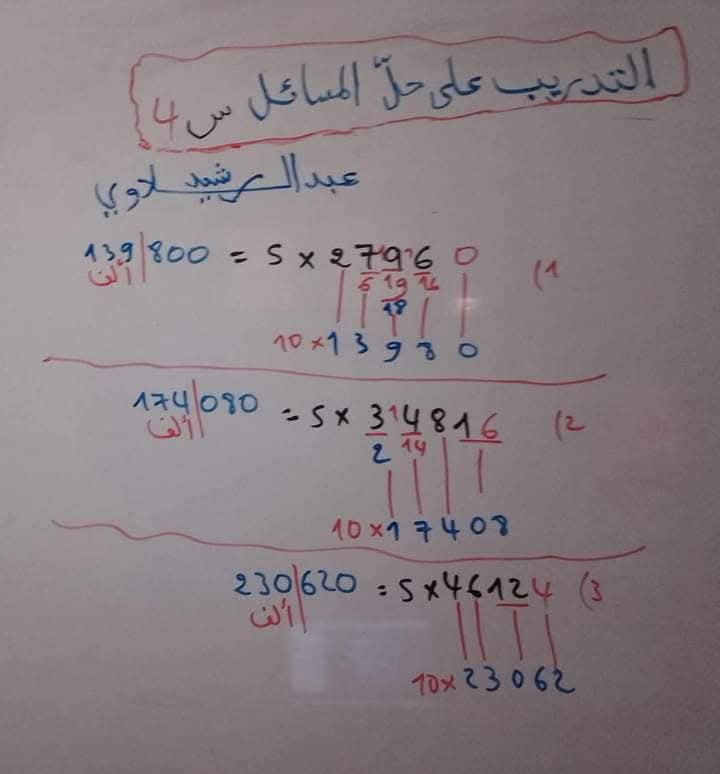 التدريب على حلّ المسائل س 4
عبدالرشيد لاوي
139/800 = 5 × 27960 (1
ألف
6 19 16
18
10 × 13980
174/080 = 5 × 34816 (2
ألف
2 14
10 × 17408
230/620 = 5 × 46124 (3
ألف
10 × 23062